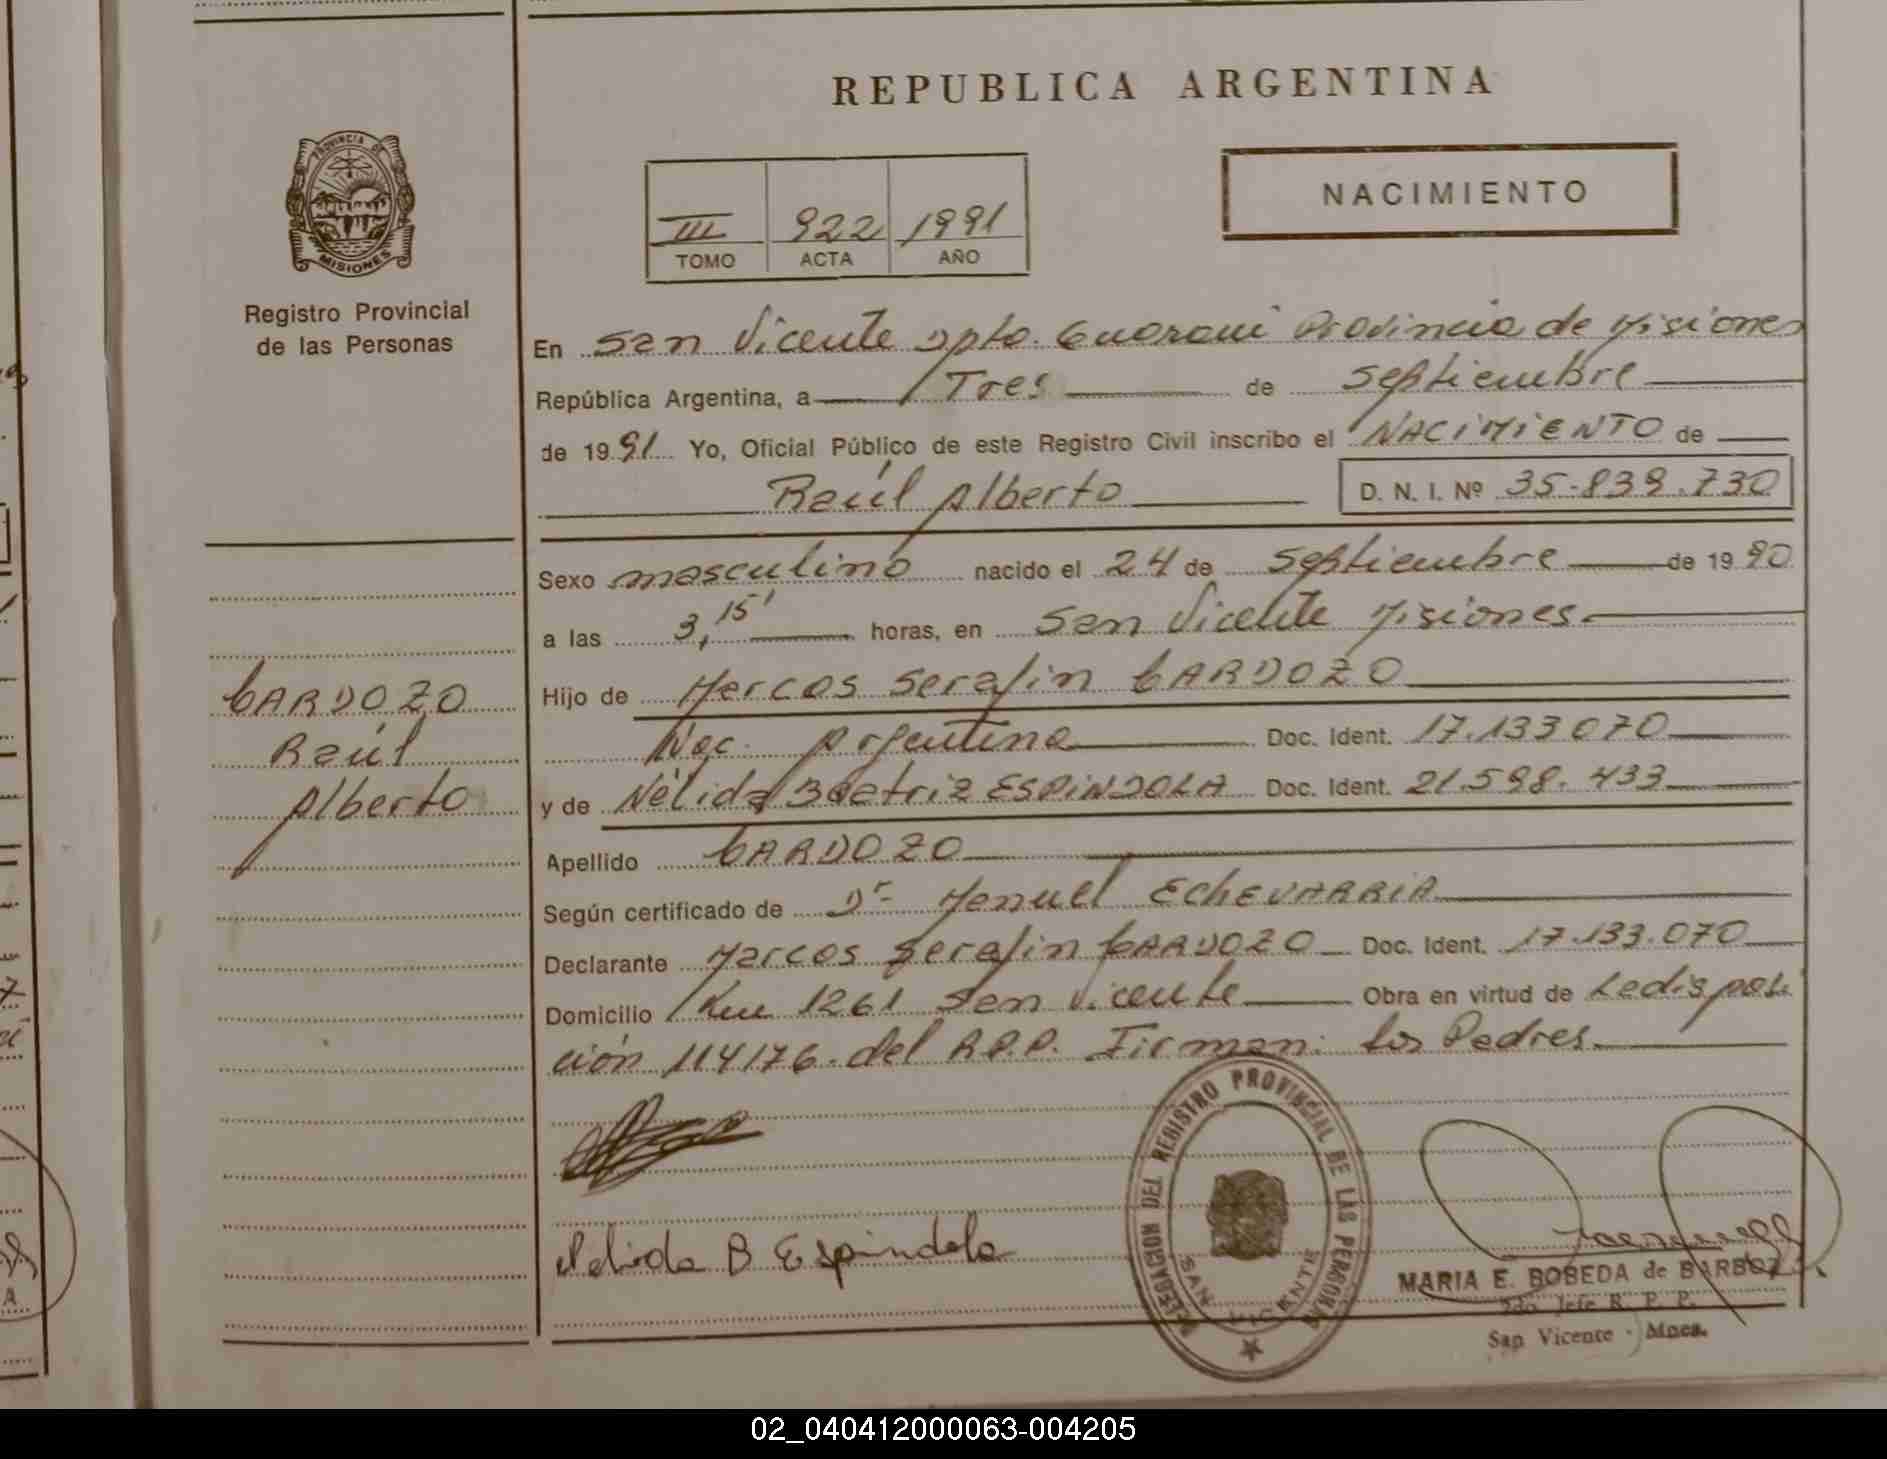 REPUBLICA ARGENTINA
PROVINCIA DE
MISIONES
Registro Provincial
de las Personas
III 922 1991
TOMO ACTA AÑO
NACIMIENTO
En San Vicente Dpto. Guarani Provincia de Misiones
República Argentina, a Tres de Septiembre
de 1991 Yo, Oficial Público de este Registro Civil inscribo el NACIMIENTO de
Raúl Alberto D. N. I. Nº 35.839.730
Sexo masculino nacido el 24 de Septiembre de 1990
a las 3,15' horas, en San Vicente Misiones
Hijo de Marcos Serafin CARDOZO
Nac. Argentina Doc. Ident. 17.133.070
y de Nélida Beatriz ESPINDOLA Doc. Ident. 21.598.433
Apellido CARDOZO
Según certificado de Dr. Manuel ECHEVARRIA
Declarante Marcos Serafin CARDOZO Doc. Ident. 17.133.070
Domicilio Km 1261 San Vicente Obra en virtud de La disposi
ción 114/76. del R.P.P. Firman: los Padres.
CARDOZO
Raúl
Alberto
Nelida B Espindola
DELEGACION DEL REGISTRO PROVINCIAL DE LAS PERSONAS
SAN VICENTE
MARIA E. BOBEDA de BARBOZA
2do. Jefe R. P. P.
San Vicente - Mnes.
02_040412000063-004205